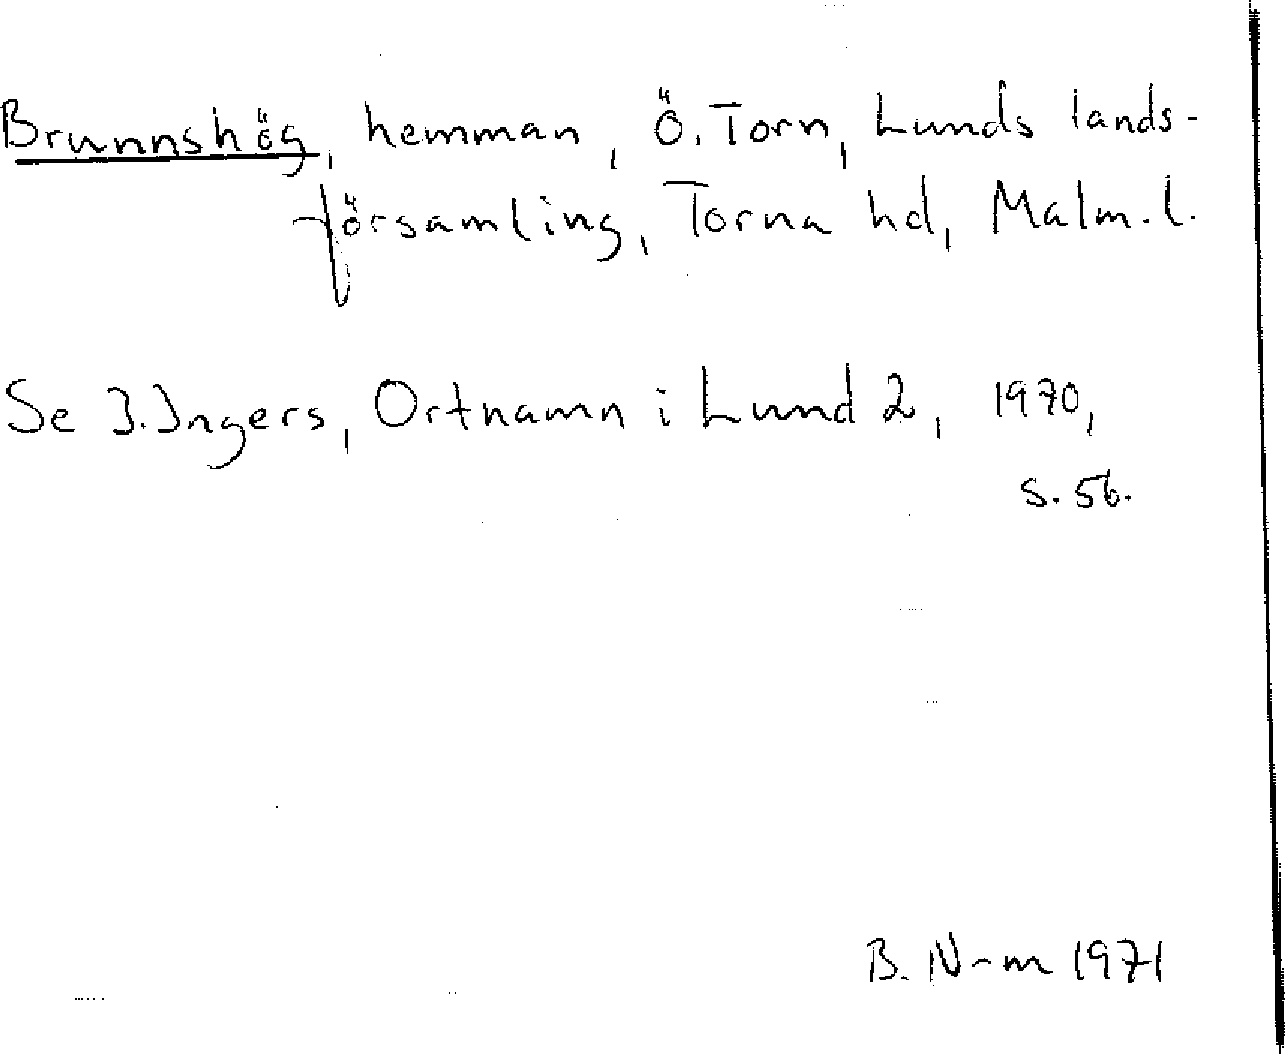 Brunnshög, hemman, Ö. Torn, Lunds lands-
församling, Torna hd, Malm. l.
Se I. Ingers, Ortnamn i Lund 2, 1970,
s. 56.
B. N-m 1971